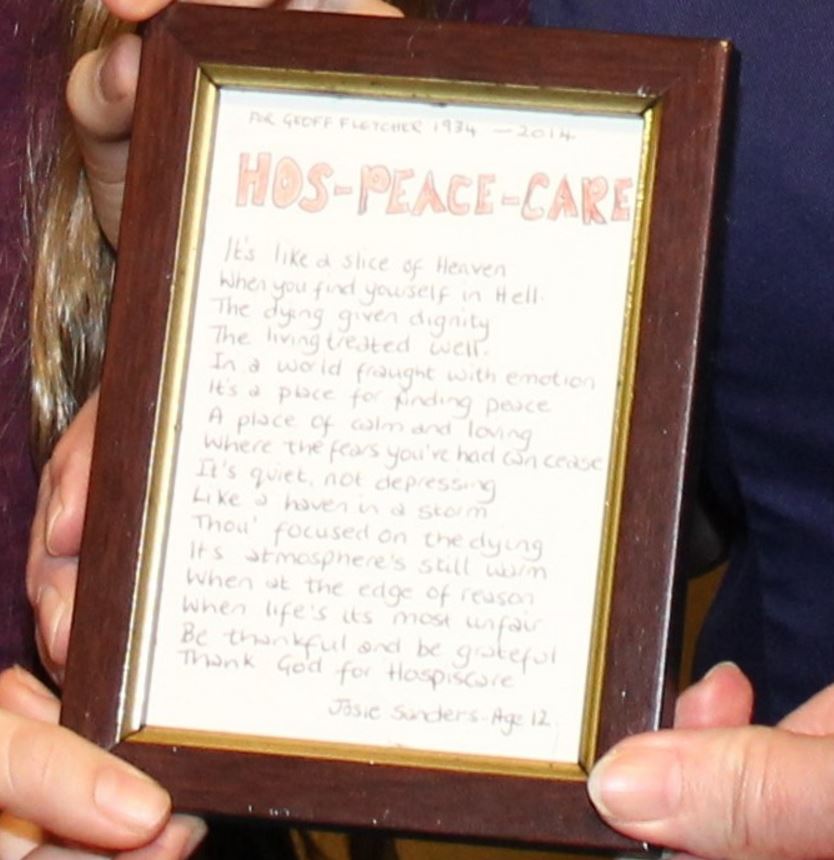 FOR GEOFF FLETCHER 1934 - 2014
HOS-PEACE-CARE
It's like a slice of Heaven
When you find yourself in Hell.
The dying given dignity
The living treated well.
In a world fraught with emotion
It's a place for finding peace
A place of calm and loving
Where the fears you've had can cease
It's quiet, not depressing
Like a haven in a storm
Thou' focused on the dying
Its atmosphere's still warm
When at the edge of reason
When life's its most unfair
Be thankful and be grateful
Thank God for Hospiscare
Josie Sanders - Age 12.